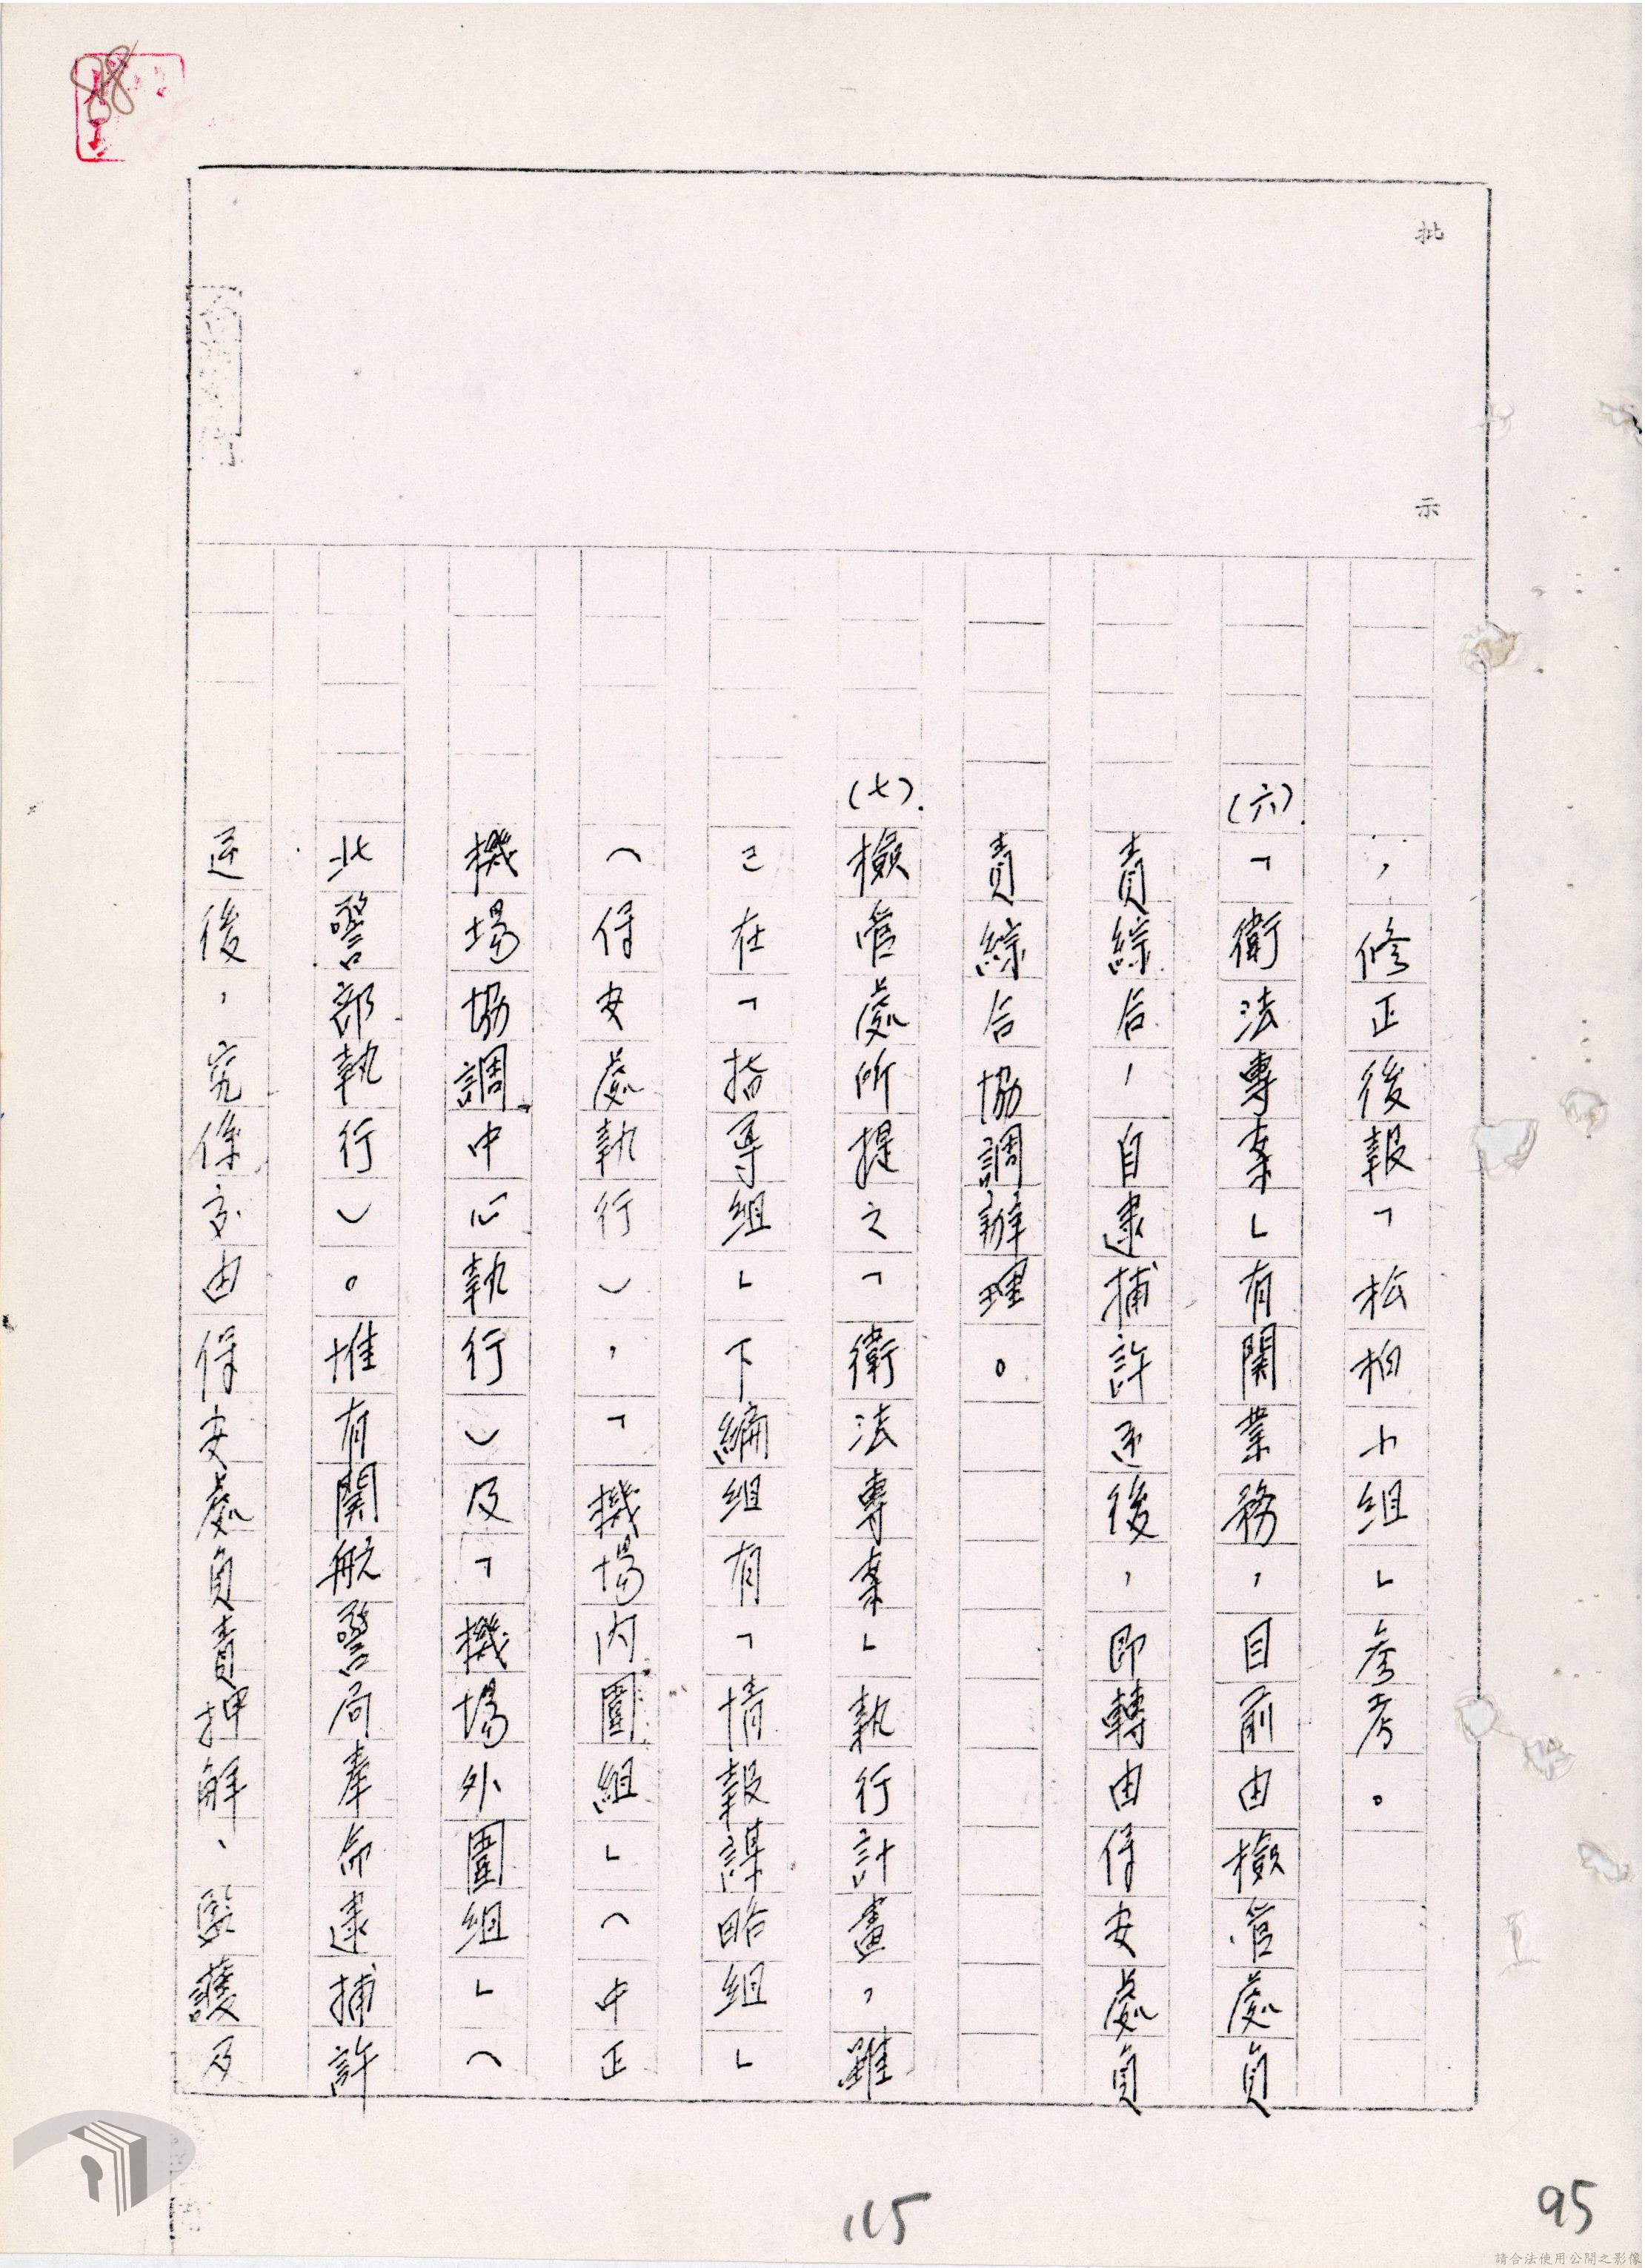 88
批示
，修正後報「松柏小組」參考。
(六).「衛法專案」有關業務，目前由檢管處負
責綜合，自逮捕許逆後，即轉由保安處負
責綜合協調辦理。
(七).檢管處所提之「衛法專案」執行計畫，雖
已在「指導組」下編組有「情報謀略組」
（保安處執行），「機場內圍組」（中正
機場協調中心執行）及「機場外圍組」（
北警部執行）。惟有關航警局奉命逮捕許
逆後，究係交由保安處負責押解、監護及
115
95
請合法使用公開之影像